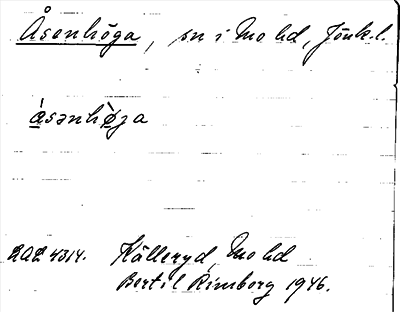 Åsenhöga, sn i Mo hd, Jönk. l.
ásənhø̀ga
ULL 4314. Källeryd, Mo hd
Bertil Rimborg 1946.